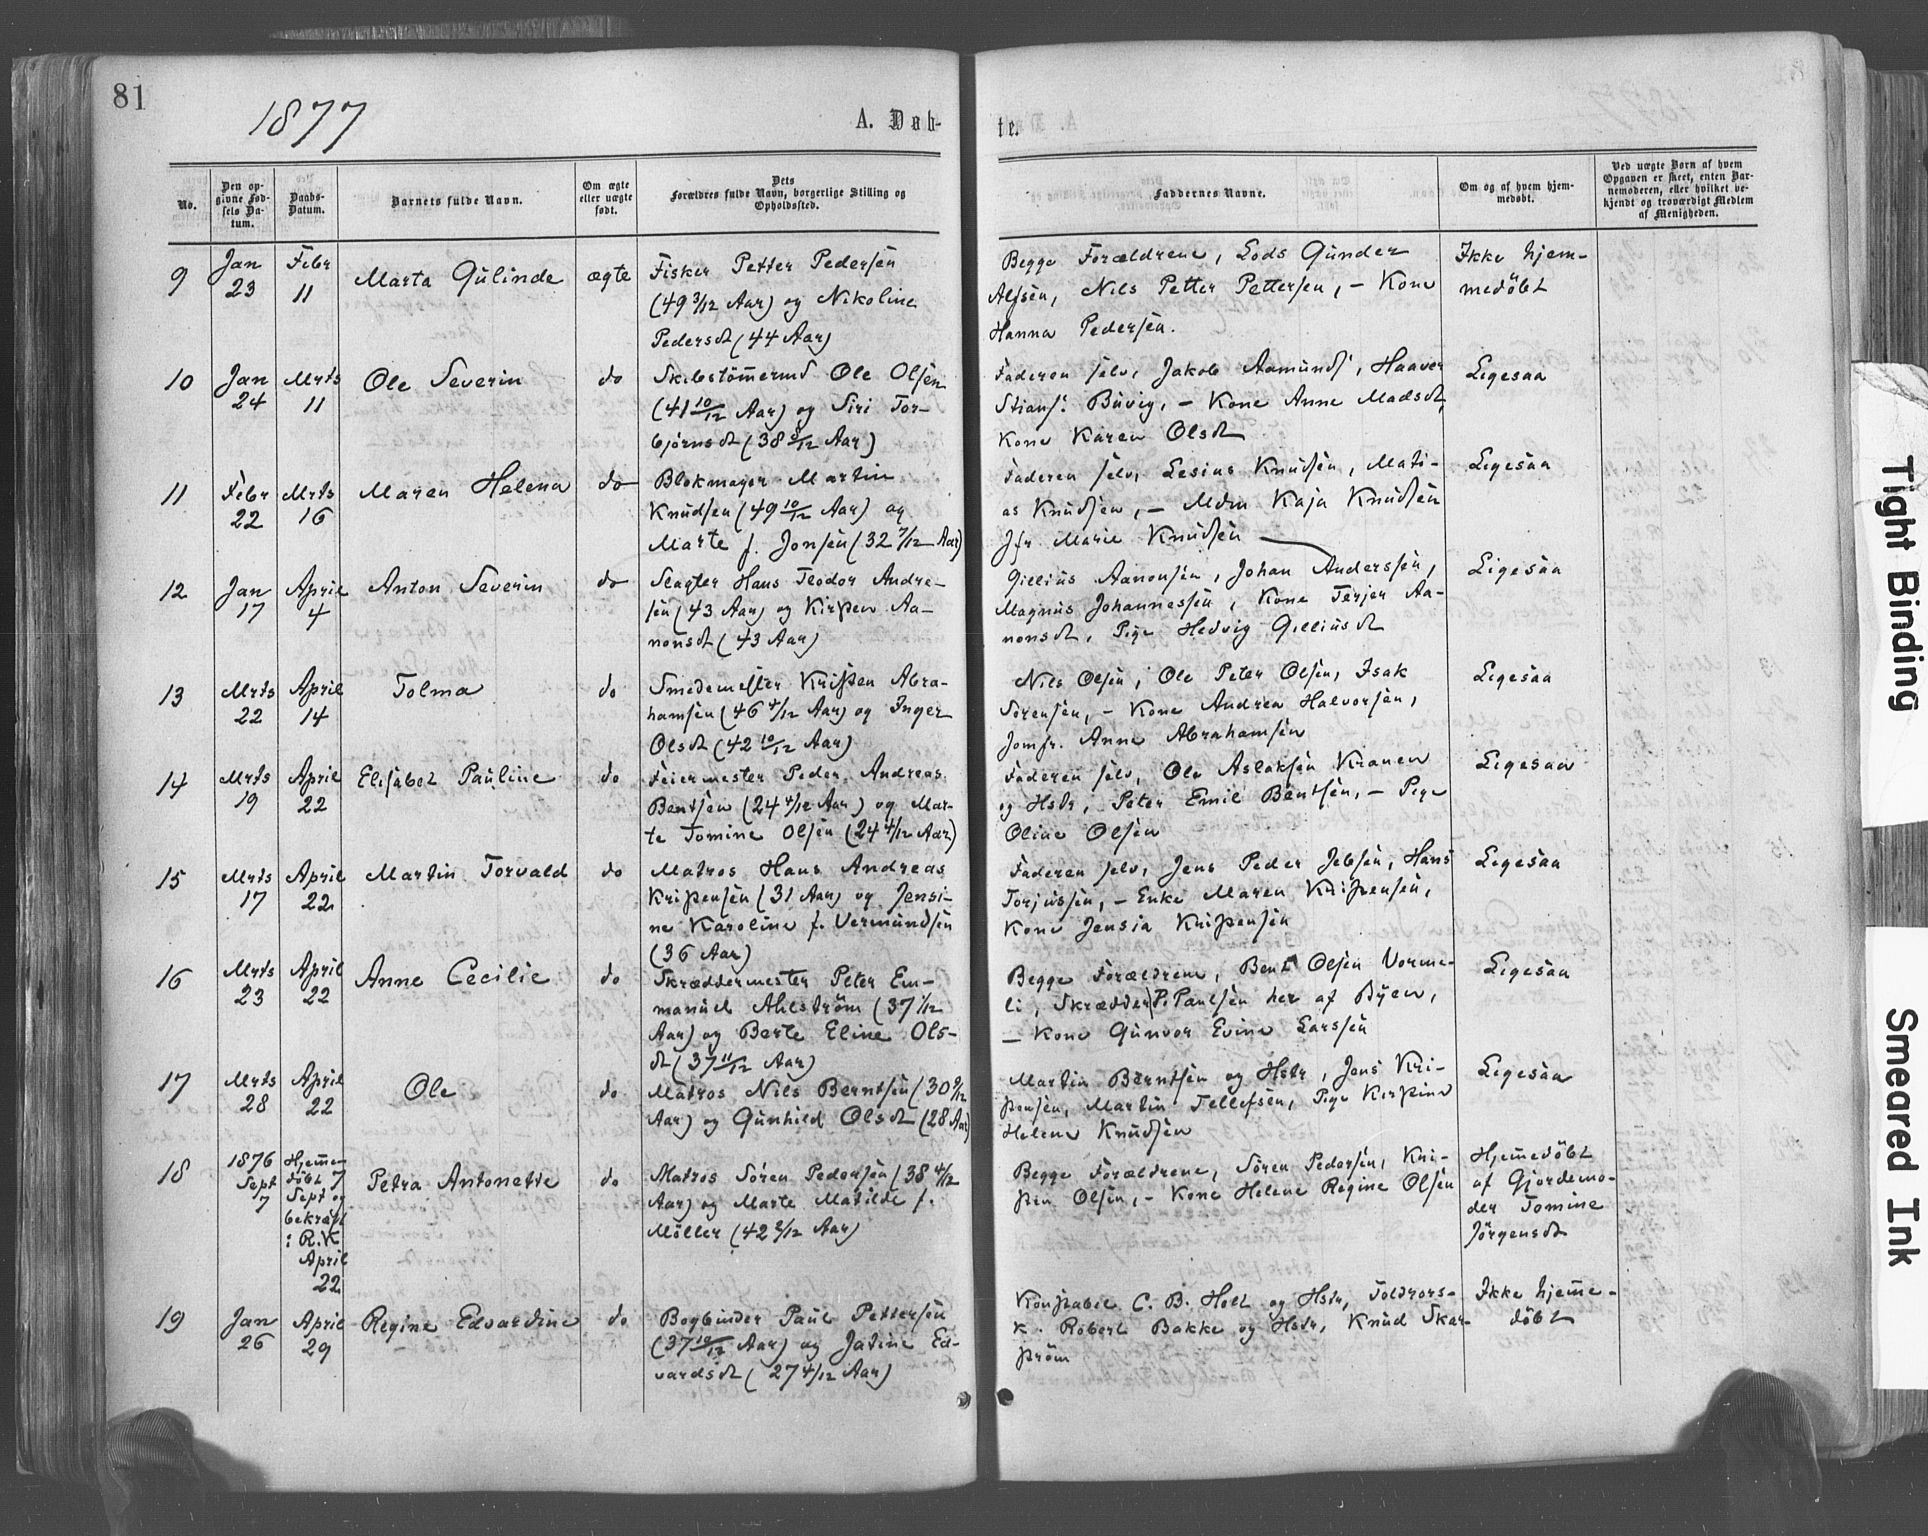 81
1877
A. Døb-
te.
No.
Den op-
givne Fød-
sels Da-
tum.
Daabs-
Datum.
Barnets fulde Navn.
Om ægte
eller uægte
født.
Dets
Forældres fulde Navn, borgerlige Stilling og
Opholdssted.
Faddernes Navne.
Om og af hvem hjem-
medøbt.
Ved uægte Børn af hvem
Opgaven er skeet, enten Bar-
nemoderen, eller hvilket be-
kjendt og troværdigt Medlem
af Menigheden.
9 Jan 23 Febr 11 Marta Gulinde ægte
Fisker Petter Pedersen
(49 3/12 Aar) og Nikoline
Pedersdt (44 Aar)
Begge Forældrene, Lods Gunder
Alfsen, Nils Petter Pettersen, – Kone
Hanna Pedersen.
Ikke hjem-
medöbt
10 Jan 24 Mrts 11 Ole Severin do
Skibstömermd Ole Olsen
(41 10/12 Aar) og Siri Tor-
bjørnsdt (38 2/12 Aar)
Faderen selv, Jakob Aamunds, Haaver
Stians. Buvig, – Kone Anne Madsdt,
Kone Karen Olsdt
Ligesaa
11 Febr 22 Mrts 16 Maren Helena do
Blokmager Martin
Knudsen (49 10/12 Aar) og
Marte f. Jonsen (32 7/12 Aar)
Faderen selv, Lesius Knudsen, Mati-
as Knudsen, – Mdm Kaja Knudsen
Jfr Marie Knudsen
Ligesaa
12 Jan 17 April 4 Anton Severin do
Slagter Hans Teodor Andre-
sen (43 Aar) og Kirsten Aa-
nonsdt (43 Aar)
Gillius Aanonsen, Johan Anderssen,
Magnus Johannessen, Kone Terjer Aa-
nonsdt, Pige Hedvig Gilliusdt
Ligesaa
13 Mrts 22 April 14 Tolma do
Smedemester Kristen Abra-
hamsen (46 4/12 Aar) og Inger
Olsdt (42 10/12 Aar)
Nils Olsen, Ole Peter Olsen, Isak
Sörensen, – Kone Andrea Halvorsen,
Jomfr. Anne Abrahamsen
Ligesaa
14 Mrts 19 April 22 Elisabet Pauline do
Feiermester Peder Andreas
Bentsen (24 4/12 Aar) og Mar-
te Tomine Olsen (24 4/12 Aar)
Faderen selv, Ole Aslaksen Kranen
og Hstr, Peter Emil Bentsen, – Pige
Oline Olsen
Ligesaa
15 Mrts 17 April 22 Martin Torvald do
Matros Hans Andreas
Kristensen (31 Aar) og Jensi-
ne Karoline f. Vermundsen
(36 Aar)
Faderen selv, Jens Peder Jebsen, Hans
Torjussen, – Enke Maren Kristensen,
Kone Jensia Kristensen
Ligesaa
16 Mrts 23 April 22 Anne Cecilie do
Skræddermester Peter Em-
manuel Ahlström (37 1/12
Aar) og Berte Eline Ols-
dt (37 11/12 Aar)
Begge Forældrene, Bent Olsen Vorme-
li, Skrædder P. Paulsen her af Byen,
– Kone Gunvor Evine Larssen
Ligesaa
17 Mrts 28 April 22 Ole do
Matros Nils Berntsen (30 9/12
Aar) og Gunhild Olsdt (28 Aar)
Martin Berntsen og Hstr, Jens Kri-
stensen, Martin Tellefsen, Pige Kirstine
Helene Knudsen
Ligesaa
18 1876 Sept 7 Hjemme-
döbt 7
Sept og
bekræft
i R.K
April
22
Petra Antonette do
Matros Sören Pedersen (38 4/12
Aar) og Marte Matilde f.
Möller (42 2/12 Aar)
Begge Forældrene, Sören Pedersen, Kri-
sten Olsen, – Kone Helene Regine Olsen
Hjemmedöbt
af Gjordemo-
der Tomine
Jörgensdt
19 Jan 26 April 29 Regine Edvardine do
Bogbinder Paul Pettersen
(37 10/12 Aar) og Jatine Ed-
vardsdt (27 4/12 Aar)
Konstabel C. B. Holt og Hstr, Toldrors-
k. Robert Bakke og Hstr, Knud Skar-
ström
Ikke hjemme-
döbt
Tight Binding
Smeared Ink